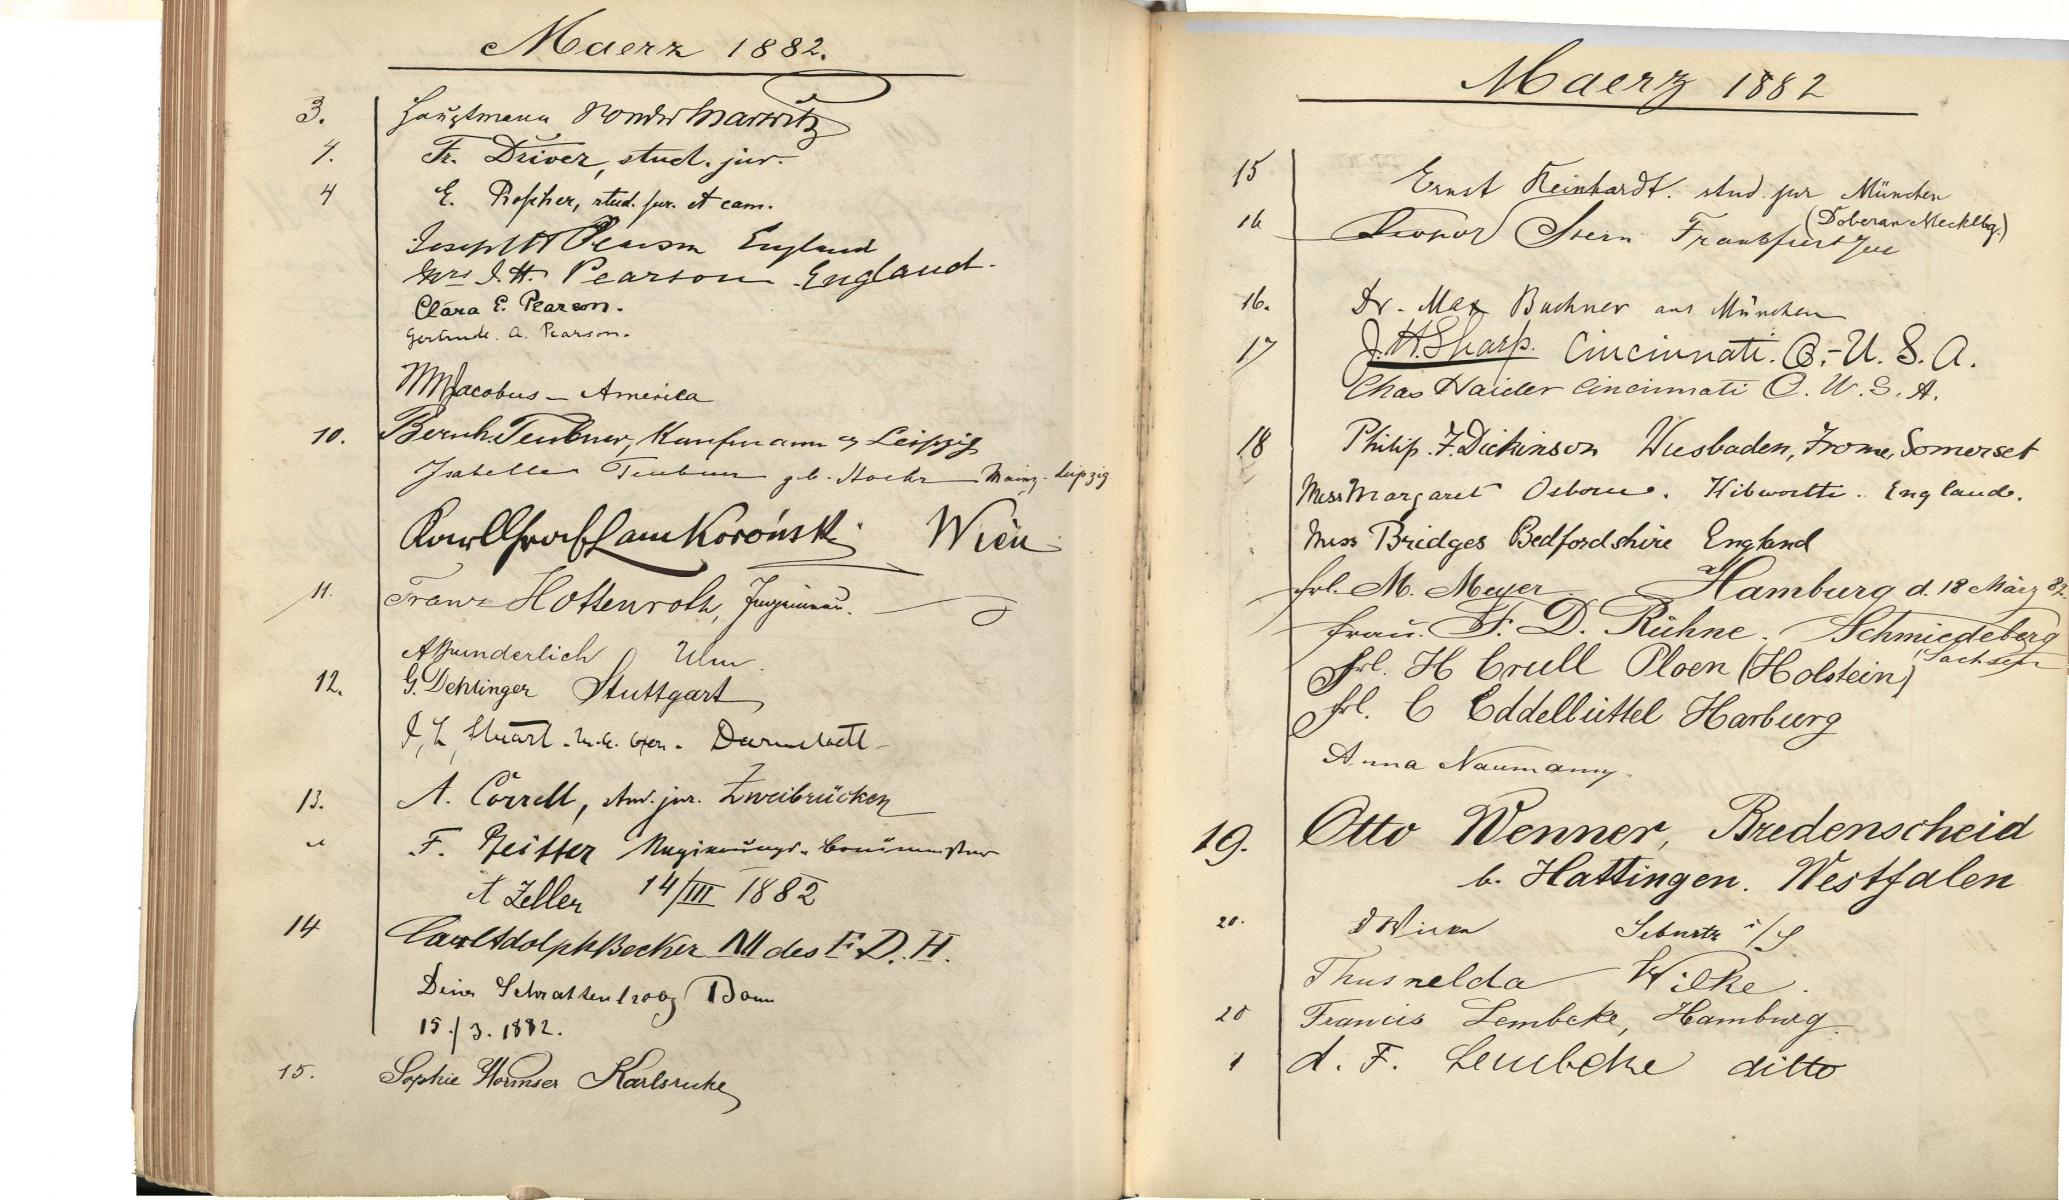 Maerz 1882.
3. Hauptmann von der Marwitz
4. Fr. Driver, stud. jur.
4 E. stud. jur. et cam.
Joseph H Pearson England
Mrs J. H. Pearson England.
Clara E. Pearson.
Gertrude. A. Pearson.
Jacobus - America
10. Bernh. Teubner, Kaufmann Leipzig
Isabella Teubner geb. Mainz-Leipzig
Karl Graf Lanckoroński Wien
11. Franz Hottenroth, Ingenieur.
A Wunderlich Ulm.
12. G. Dehlinger Stuttgart
J, L, Stuart. Darmstadt
13. A. Correll, stud. jur. Zweibrücken
" F. Regierungs-Baumeister
A Zeller 14/III 1882
14 Carl Adolph Becker des F. D. H.
Bonn
15./3. 1882.
15. Sophie Wormser Karlsruhe
Maerz 1882
15 Ernst Reinhardt. stud jur München
(Doberan Mecklbg.)
16 Leopold Stern Frankfurt
16. Dr. Max Buchner aus München
17 J. H. Sharp. Cincinnati. O.- U. S. A.
Chas Haider Cincinnati O. U. S. A.
18 Philip. F. Dickinson Wiesbaden, Frome, Somerset
Miss Margaret Osborne. Kibworth. England.
Miss Bridges Bedfordshire England
Frl. M. Meyer Hamburg d. 18 März 82.
Frau. F. D. Rühne. Schmiedeberg
Sachsen
Frl. H Crull Ploen (Holstein)
Frl. C Eddelbüttel Harburg
Anna Naumann.
19. Otto Wenner, Bredenscheid
b. Hattingen. Westfalen
20. Sebnitz i/S
Thusnelda Wilke.
20 Francis Lembcke, Hamburg.
d. F. Lembcke ditto